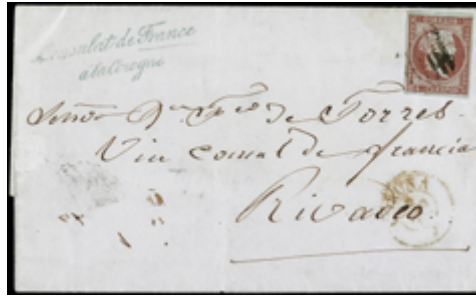 Consulat de France
à la Corogne
Señor Dn Fco de Torres.
Vice consul de francia
Rivadeo.